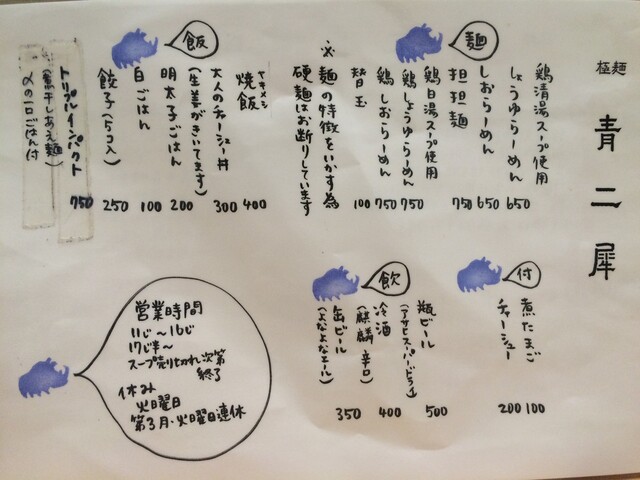 極麺 青二犀
麺
鶏清湯スープ使用
しょうゆらーめん 650
しおらーめん 650
担担麺 750
鶏白湯スープ使用
鶏しょうゆらーめん 750
鶏しおらーめん 750
替玉 100
※麺の特徴をいかす為
硬麺はお断りしています
飯
ヤキメシ
焼飯 400
大人のチャーシュー丼 300
(生姜がきいてます)
明太子ごはん 200
白ごはん 100
餃子(5コ入) 250
トリプルインパクト 750
(煮干しあえ麺)
〆の一口ごはん付
付
煮たまご 100
チャーシュー 200
飲
瓶ビール 500
(アサヒスーパードライ)
冷酒 400
(麒麟辛口)
缶ビール 350
(よなよなエール)
営業時間
11じ〜16じ
17じ半〜
スープ売り切れ次第
終了
休み
火曜日
第3月・火曜日連休